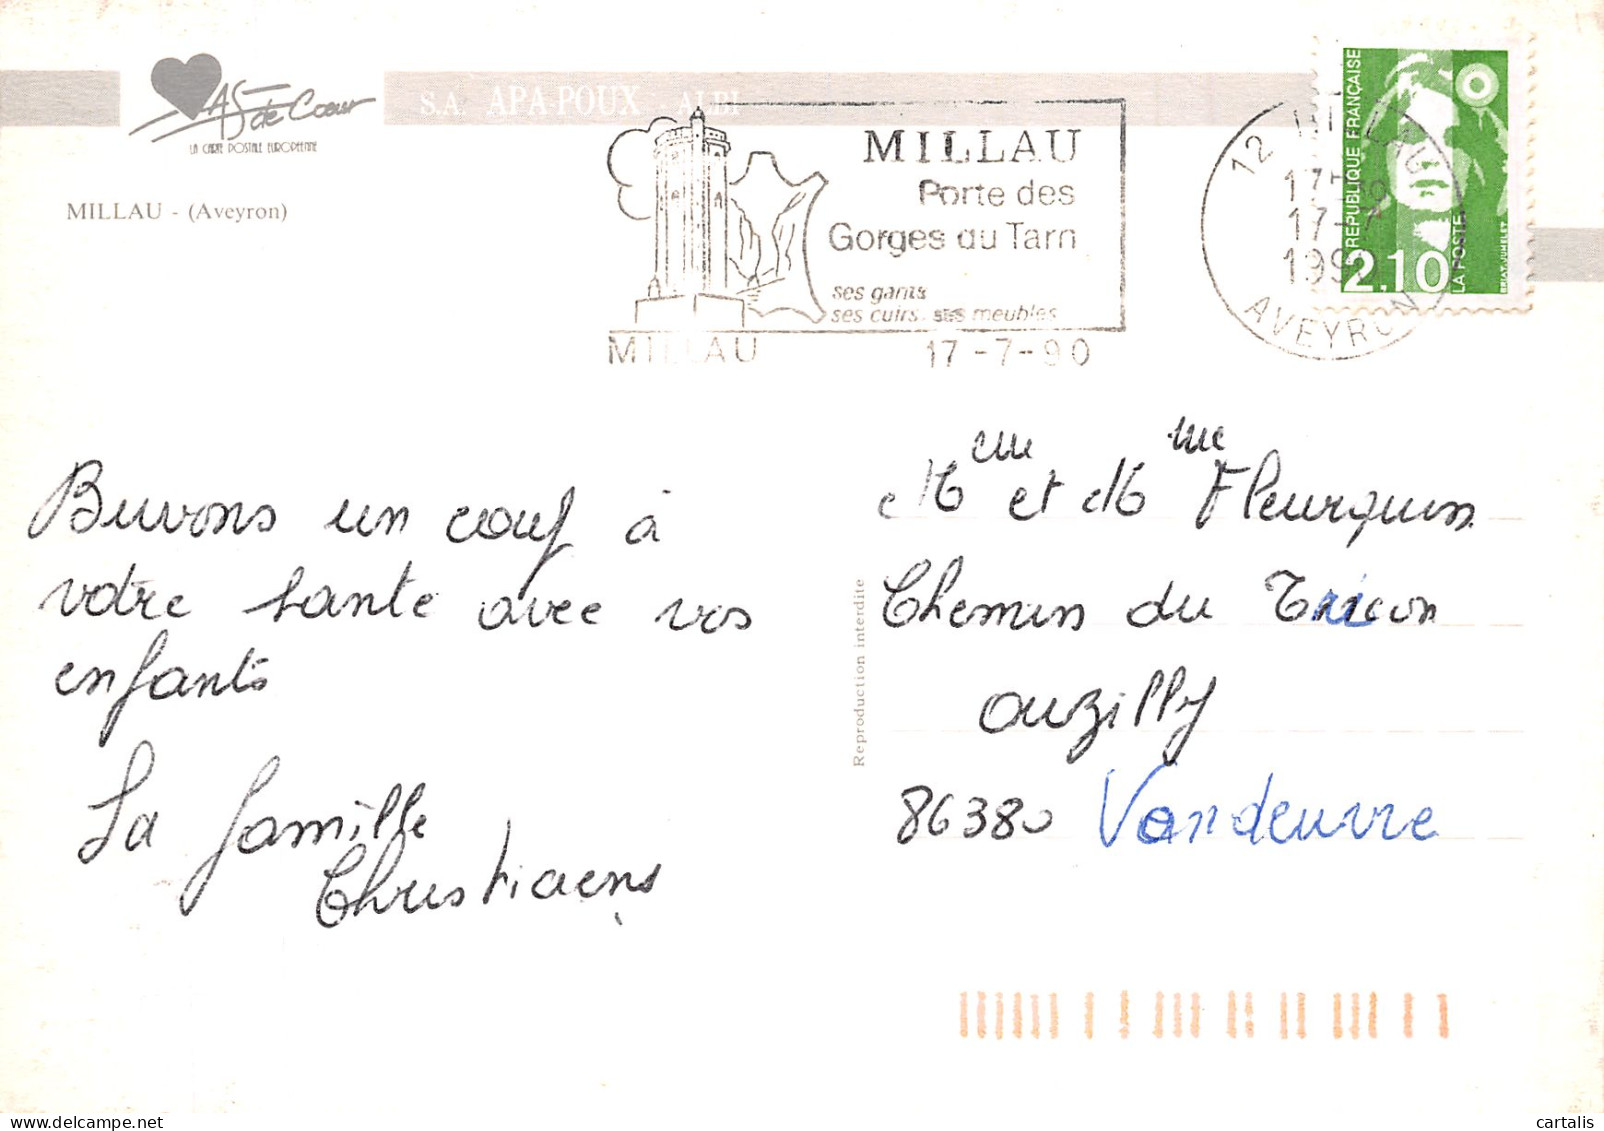 AS de Cœur
LA CARTE POSTALE EUROPÉENNE
S.A. APA-POUX - ALBI
MILLAU - (Aveyron)
MILLAU
Porte des
Gorges du Tarn
ses gants
ses cuirs. ses meubles
MILLAU 17-7-90
12 MILLAU
17-7
1990
AVEYRON
REPUBLIQUE FRANÇAISE
2,10
LA POSTE
BRIAT-JUMELET
Buvons un coup à
votre santé avec vos
enfants
La famille
Christiaens
Reproduction interdite
Mme et Mme Fleurquin
Chemin du Tricon
Ouzilly
86380 Vandeuvre
cartalis
delcampe.net